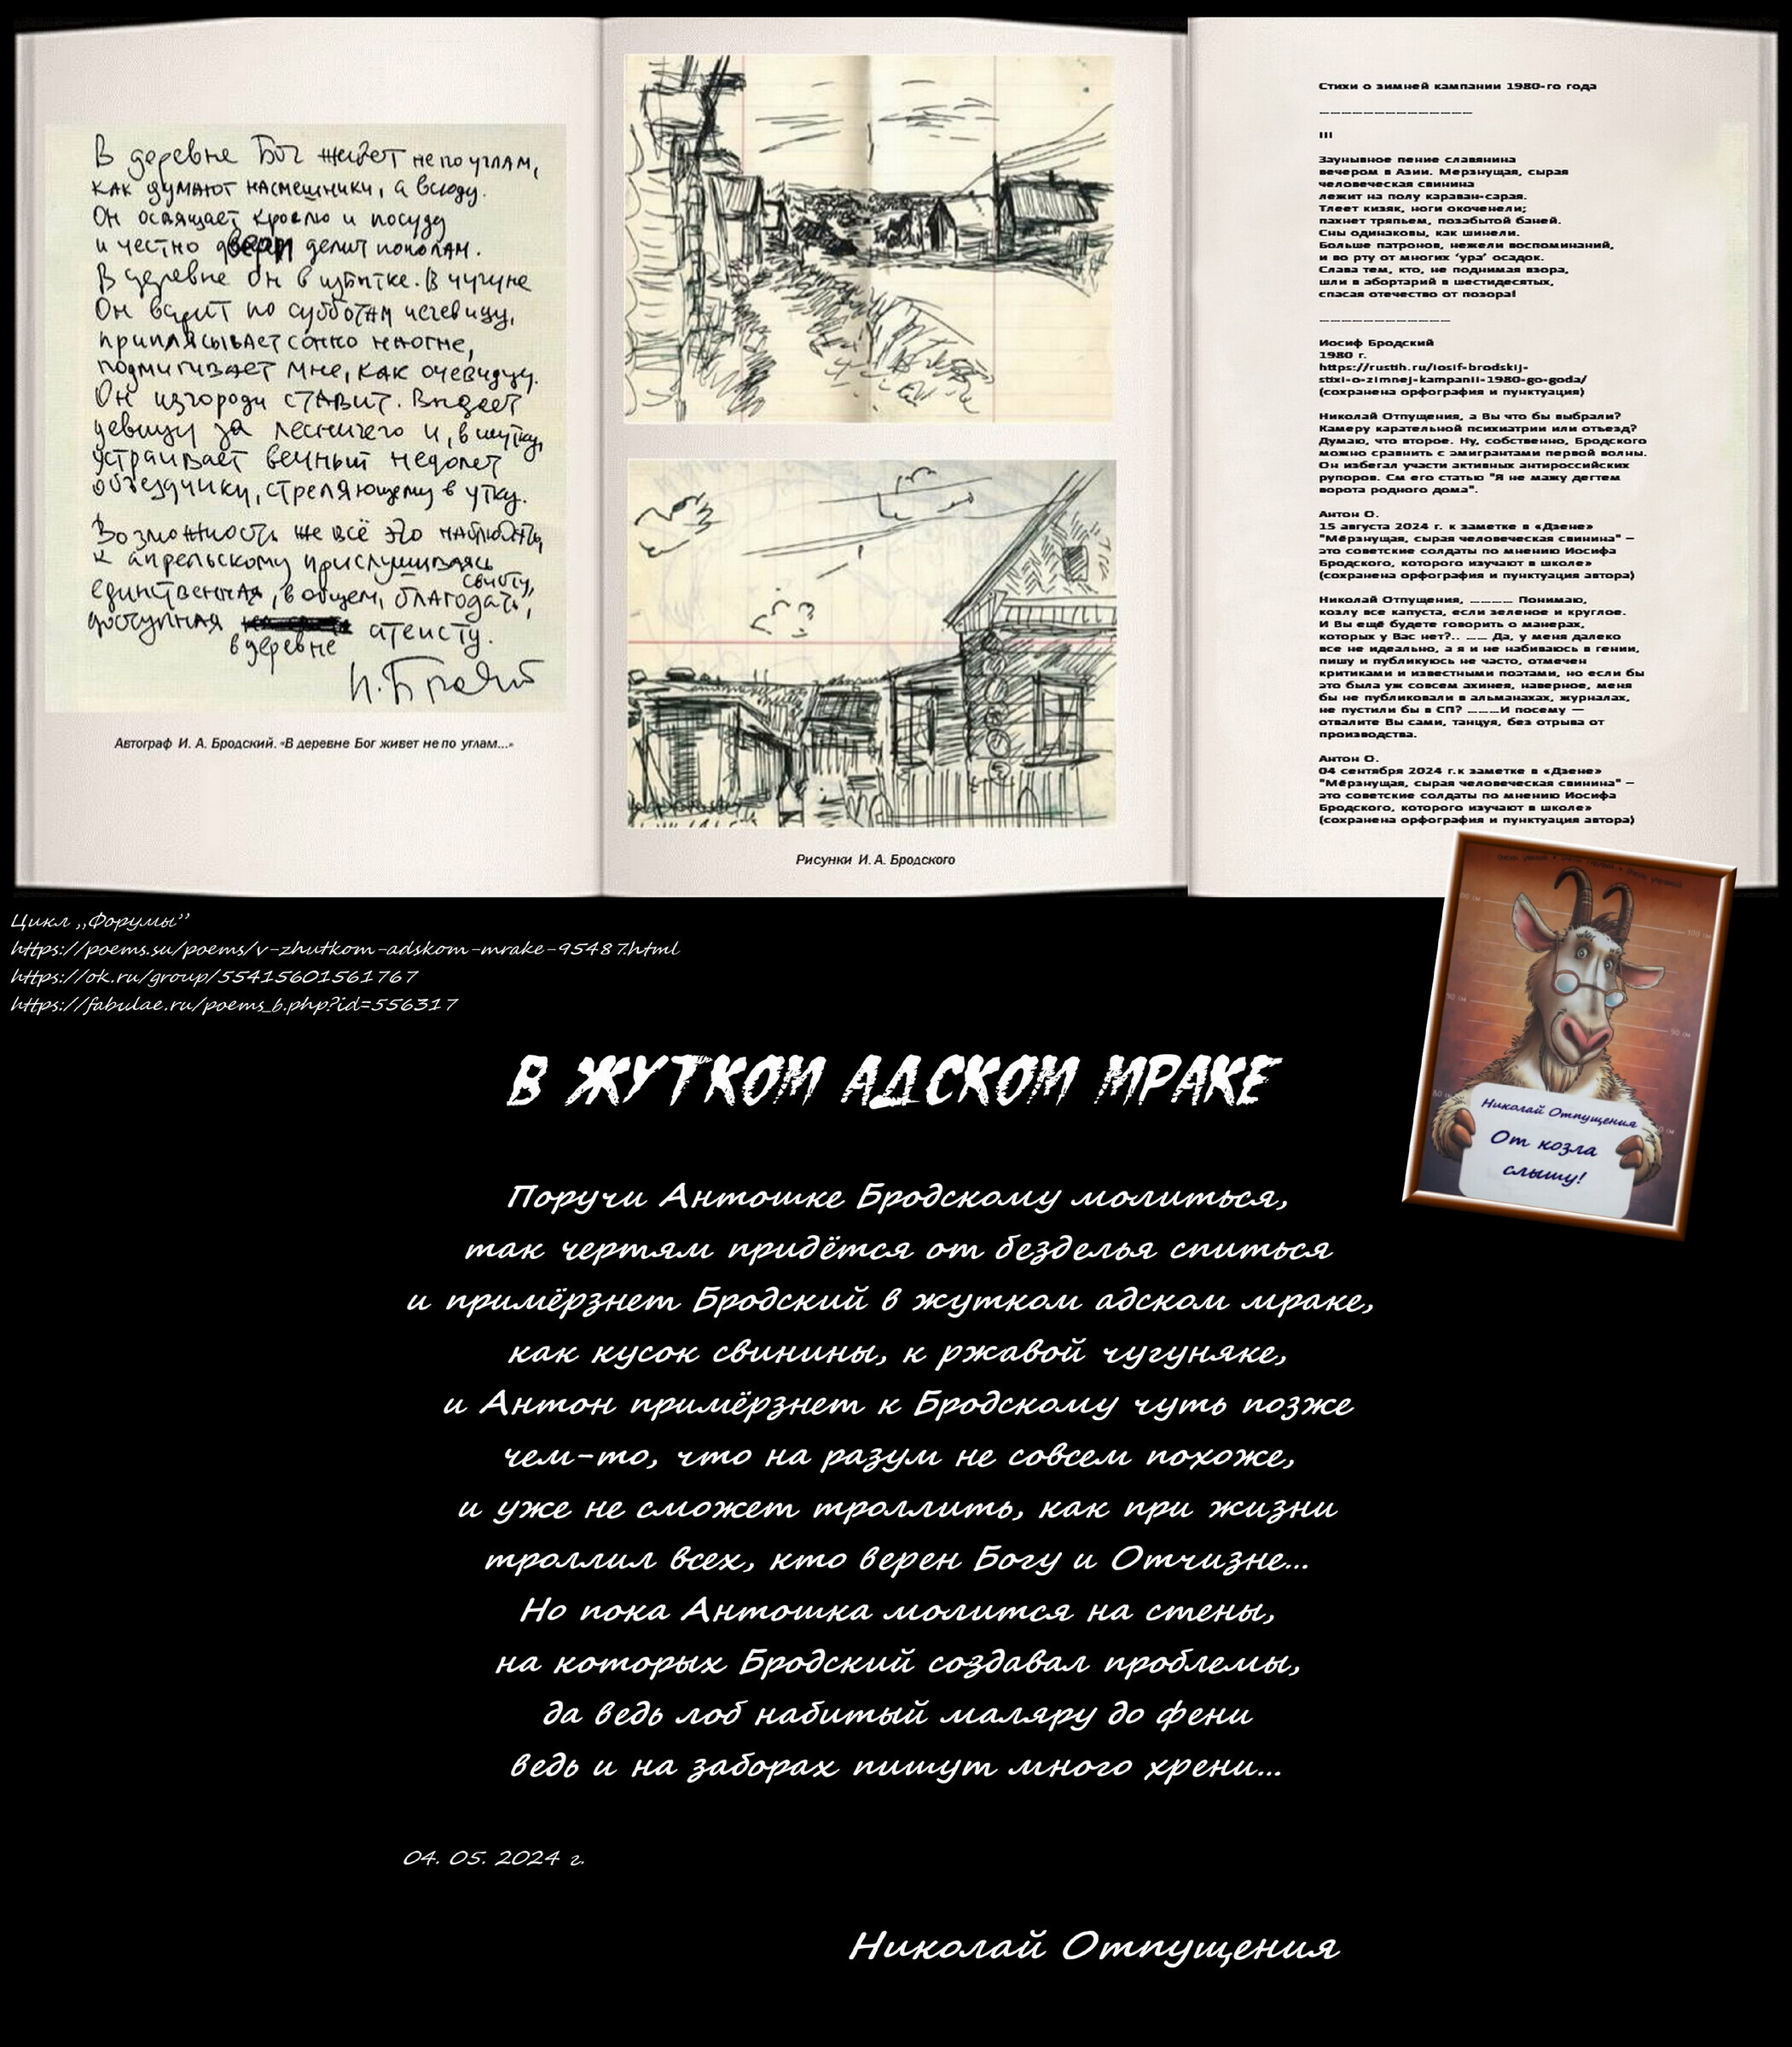 В деревне Бог живет не по углам,
как думают насмешники, а всюду.
Он освящает кровлю и посуду
и честно двери делит пополам.
В деревне Он в избытке. В чугуне
Он варит по субботам чечевицу,
приплясывает сонно на огне,
подмигивает мне, как очевидцу.
Он изгороди ставит. Выдает
девицу за лесничего и, в шутку,
устраивает вечный недолет
объездчику, стреляющему в утку.
Возможность же всё это наблюдать,
к апрельскому прислушиваясь
свисту,
единственная, в общем, благодать,
доступная атеисту.
в деревне
Автограф И. А. Бродский. «В деревне Бог живет не по углам...»
Рисунки И. А. Бродского
Стихи о зимней кампании 1980-го года
———————————————
III
Заунывное пение славянина
вечером в Азии. Мерзнущая, сырая
человеческая свинина
лежит на полу караван-сарая.
Тлеет кизяк, ноги окоченели;
пахнет тряпьем, позабытой баней.
Сны одинаковы, как шинели.
Больше патронов, нежели воспоминаний,
и во рту от многих ‘ура’ осадок.
Слава тем, кто, не поднимая взора,
шли в абортарий в шестидесятых,
спасая отечество от позора!
—————————————
Иосиф Бродский
1980 г.
https://rustih.ru/iosif-brodskij-
stixi-o-zimnej-kampanii-1980-go-goda/
(сохранена орфография и пунктуация)
Николай Отпущения, а Вы что бы выбрали?
Камеру карательной психиатрии или отъезд?
Думаю, что второе. Ну, собственно, Бродского
можно сравнить с эмигрантами первой волны.
Он избегал участи активных антироссийских
рупоров. См его статью "Я не мажу дегтем
ворота родного дома".
Антон О.
15 августа 2024 г. к заметке в «Дзене»
"Мёрзнущая, сырая человеческая свинина" —
это советские солдаты по мнению Иосифа
Бродского, которого изучают в школе»
(сохранена орфография и пунктуация автора)
Николай Отпущения, ———— Понимаю,
козлу все капуста, если зеленое и круглое.
И Вы ещё будете говорить о манерах,
которых у Вас нет?.. —— Да, у меня далеко
все не идеально, а я и не набиваюсь в гении,
пишу и публикуюсь не часто, отмечен
критиками и известными поэтами, но если бы
это была уж совсем ахинея, наверное, меня
бы не публиковали в альманахах, журналах,
не пустили бы в СП? ———И посему —
отвалите Вы сами, танцуя, без отрыва от
производства.
Антон О.
04 сентября 2024 г.к заметке в «Дзене»
"Мёрзнущая, сырая человеческая свинина" —
это советские солдаты по мнению Иосифа
Бродского, которого изучают в школе»
(сохранена орфография и пунктуация автора)
Николай Отпущения
От козла
слышу!
Цикл „Форумы”
https://poems.su/poems/v-zhutkom-adskom-mrake-95487.html
https://ok.ru/group/55415601561767
https://fabulae.ru/poems_b.php?id=556317
В ЖУТКОМ АДСКОМ МРАКЕ
Поручи Антошке Бродскому молиться,
так чертям придётся от безделья спиться
и примёрзнет Бродский в жутком адском мраке,
как кусок свинины, к ржавой чугуняке,
и Антон примёрзнет к Бродскому чуть позже
чем-то, что на разум не совсем похоже,
и уже не сможет троллить, как при жизни
троллил всех, кто верен Богу и Отчизне...
Но пока Антошка молится на стены,
на которых Бродский создавал проблемы,
да ведь лоб набитый маляру до фени
ведь и на заборах пишут много хрени...
04. 05. 2024 г.
Николай Отпущения